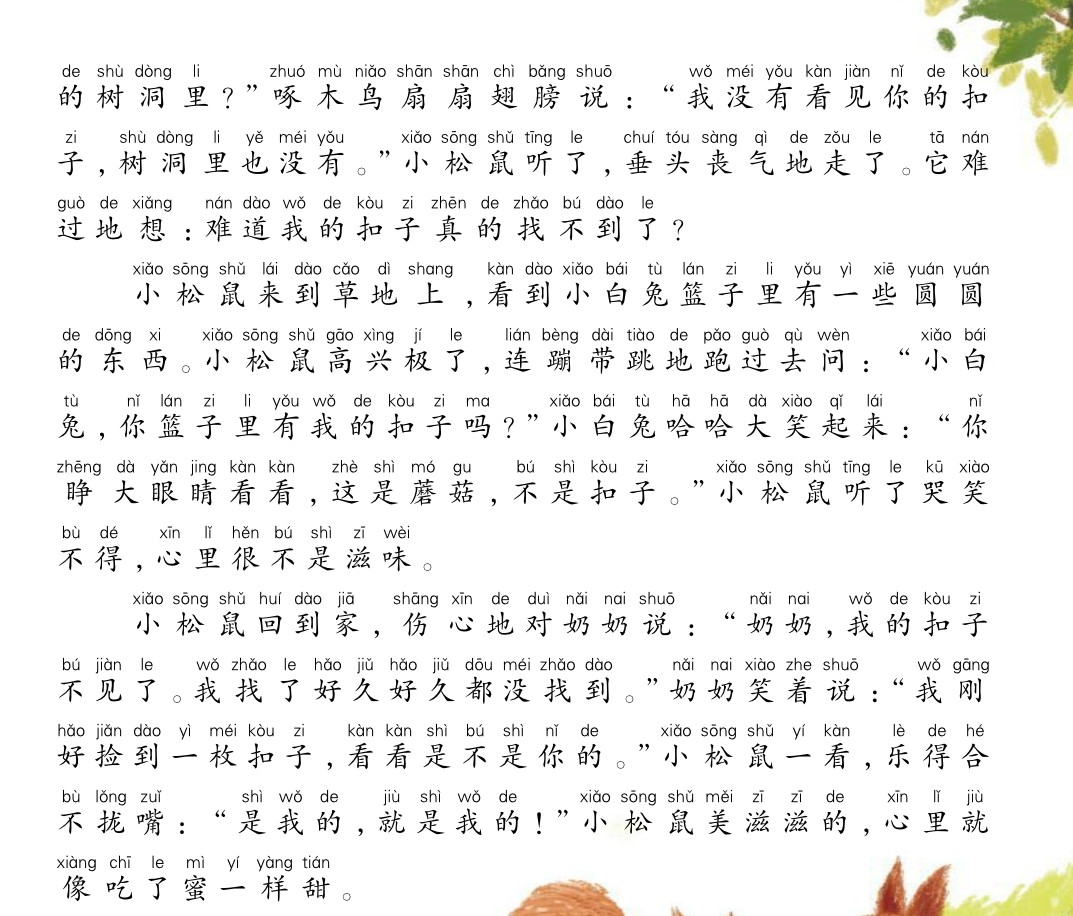 de shù dòng li zhuó mù niǎo shān shān chì bǎng shuō wǒ méi yǒu kàn jiàn nǐ de kòu
的树洞里？”啄木鸟扇扇翅膀说：“我没有看见你的扣
zi shù dòng li yě méi yǒu xiǎo sōng shǔ tīng le chuí tóu sàng qì de zǒu le tā nán
子，树洞里也没有。”小松鼠听了，垂头丧气地走了。它难
guò de xiǎng nán dào wǒ de kòu zi zhēn de zhǎo bú dào le
过地想：难道我的扣子真的找不到了？
xiǎo sōng shǔ lái dào cǎo dì shang kàn dào xiǎo bái tù lán zi li yǒu yì xiē yuán yuán
小松鼠来到草地上，看到小白兔篮子里有一些圆圆
de dōng xi xiǎo sōng shǔ gāo xìng jí le lián bèng dài tiào de pǎo guò qù wèn xiǎo bái
的东西。小松鼠高兴极了，连蹦带跳地跑过去问：“小白
tù nǐ lán zi li yǒu wǒ de kòu zi ma xiǎo bái tù hā hā dà xiào qǐ lái nǐ
兔，你篮子里有我的扣子吗？”小白兔哈哈大笑起来：“你
zhēng dà yǎn jing kàn kàn zhè shì mó gu bú shì kòu zi xiǎo sōng shǔ tīng le kū xiào
睁大眼睛看看，这是蘑菇，不是扣子。”小松鼠听了哭笑
bù dé xīn lǐ hěn bú shì zī wèi
不得，心里很不是滋味。
xiǎo sōng shǔ huí dào jiā shāng xīn de duì nǎi nai shuō nǎi nai wǒ de kòu zi
小松鼠回到家，伤心地对奶奶说：“奶奶，我的扣子
bú jiàn le wǒ zhǎo le hǎo jiǔ hǎo jiǔ dōu méi zhǎo dào nǎi nai xiào zhe shuō wǒ gāng
不见了。我找了好久好久都没找到。”奶奶笑着说：“我刚
hǎo jiǎn dào yì méi kòu zi kàn kàn shì bú shì nǐ de xiǎo sōng shǔ yí kàn lè de hé
好捡到一枚扣子，看看是不是你的。”小松鼠一看，乐得合
bù lǒng zuǐ shì wǒ de jiù shì wǒ de xiǎo sōng shǔ měi zī zī de xīn lǐ jiù
不拢嘴：“是我的，就是我的！”小松鼠美滋滋的，心里就
xiàng chī le mì yí yàng tián
像吃了蜜一样甜。